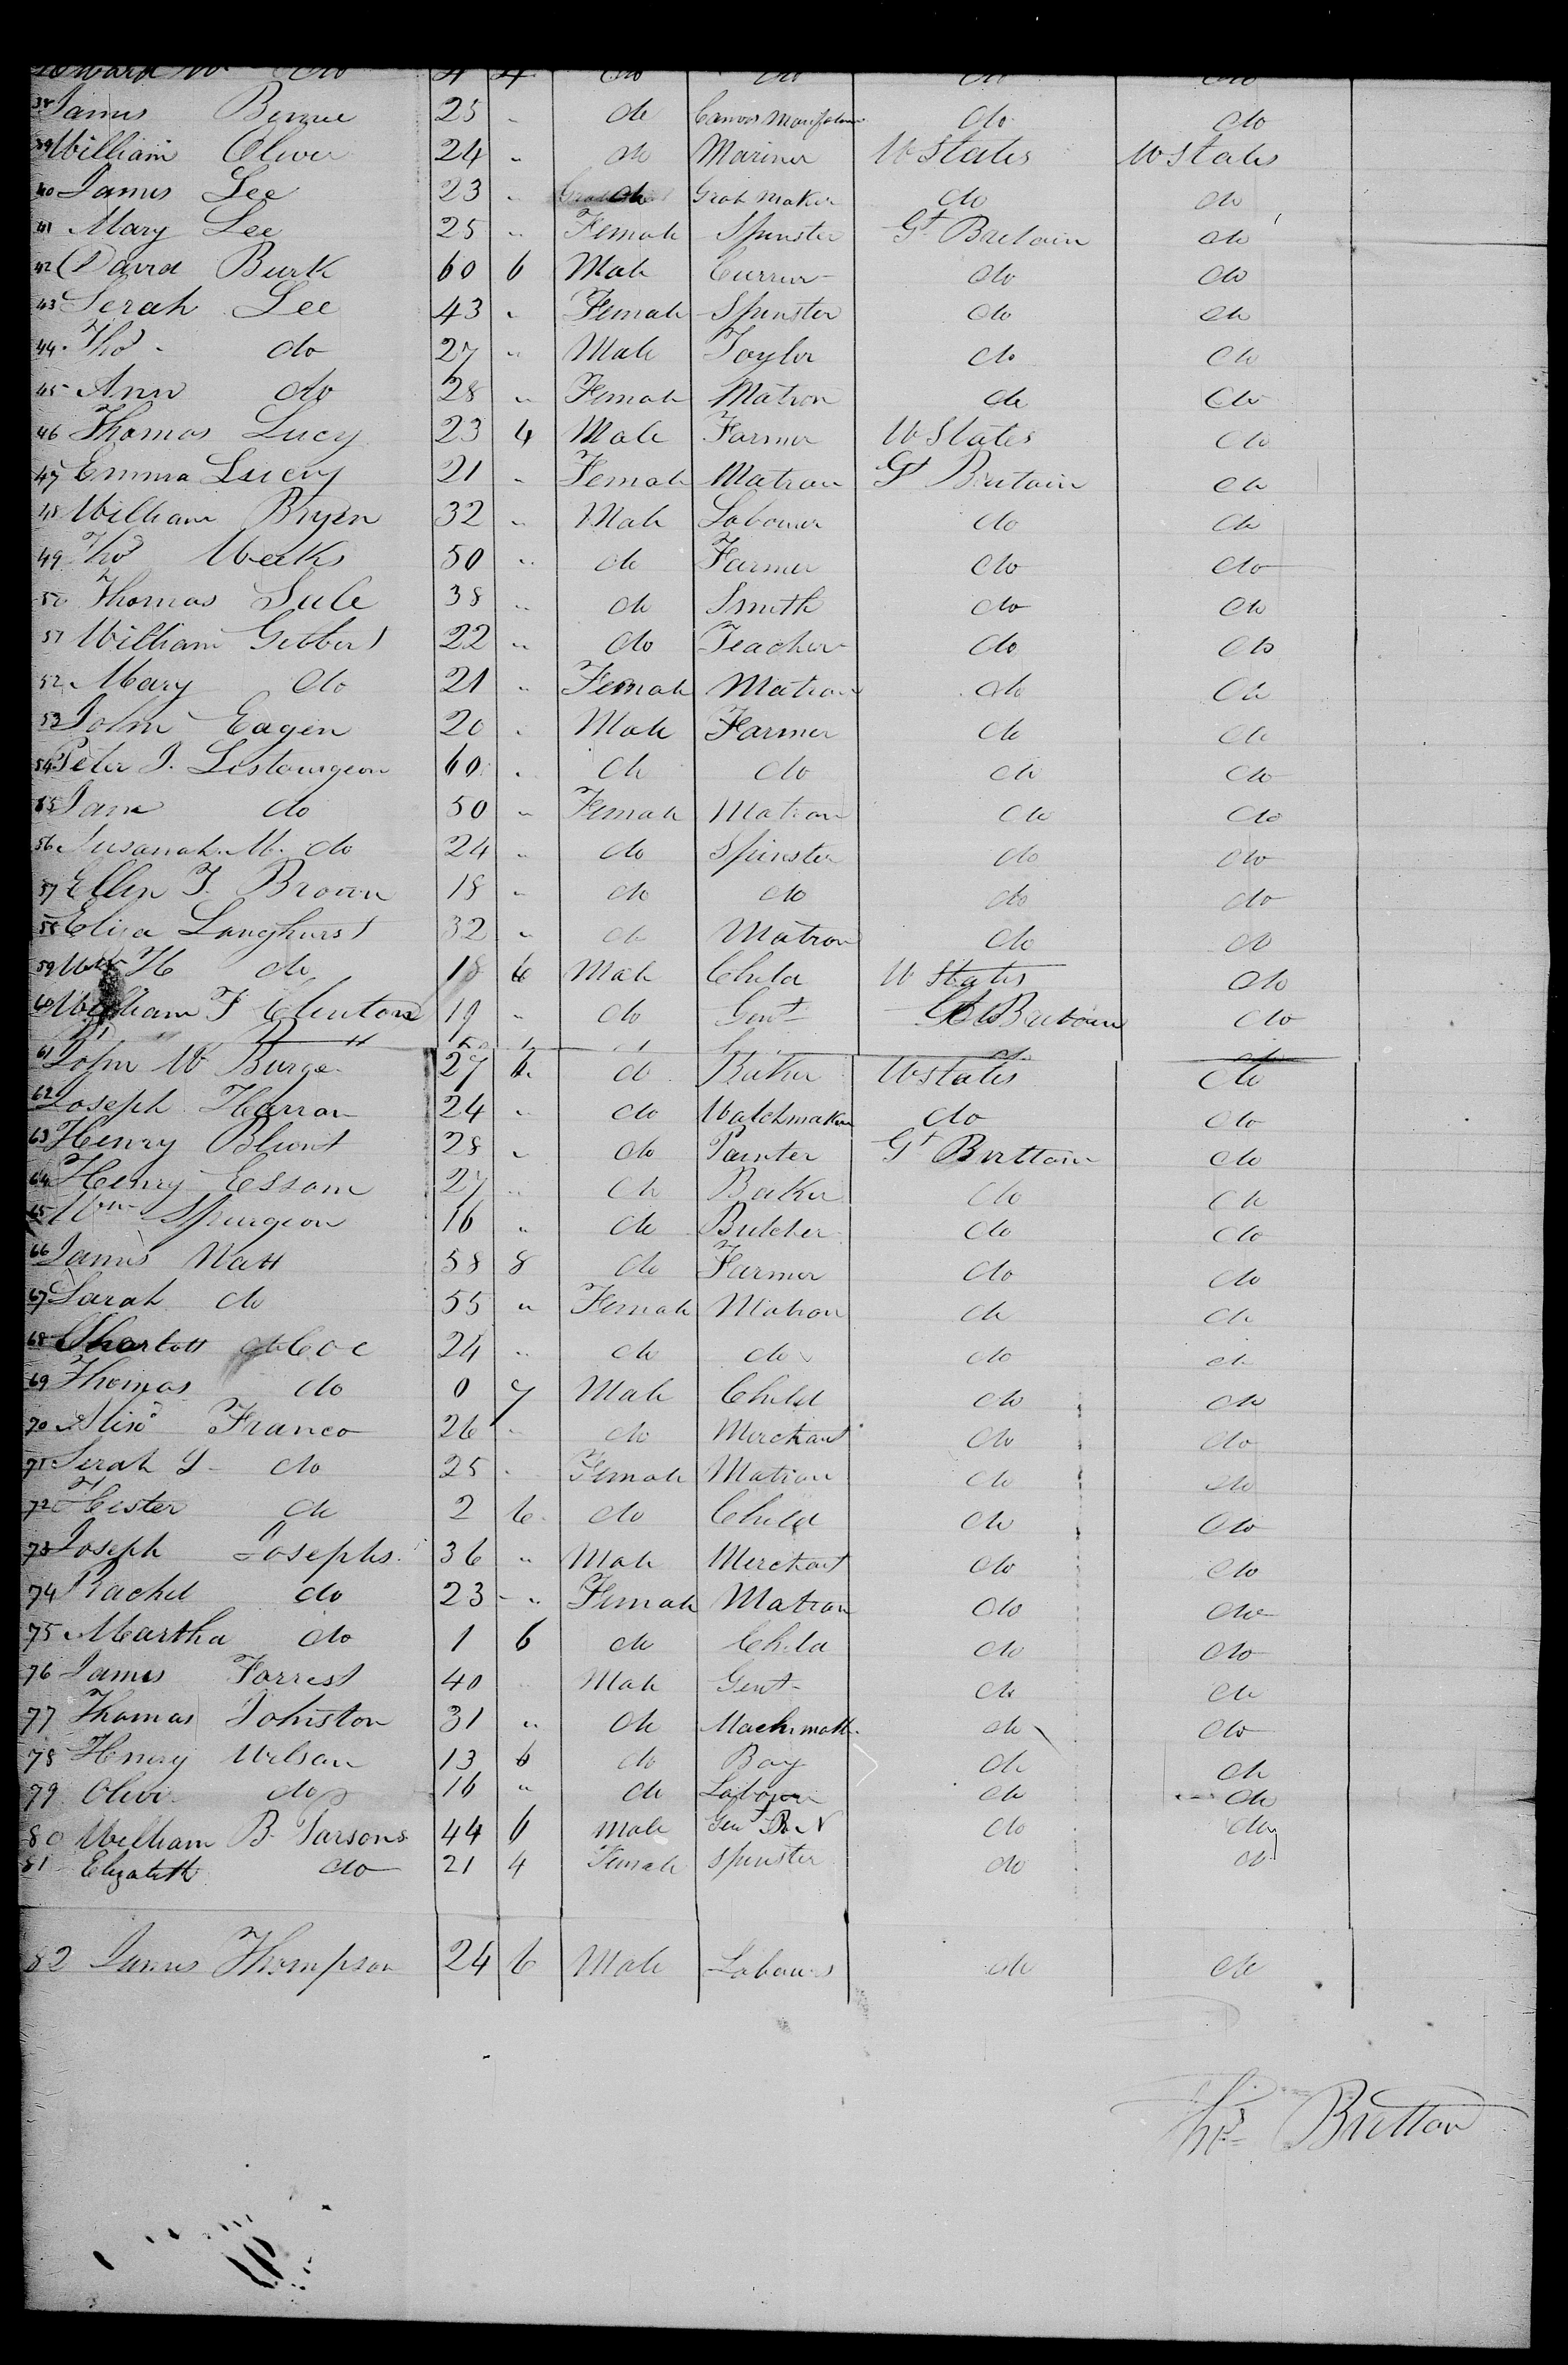 Edward W do 4 4 do do do do
38 James Bowne 25 " do Canvas do do
39 William Oliver 24 " do Mariner U States U States
40 James Lee 23 " do Grate Maker do do
41 Mary Lee 25 " Female Spinster Gt Britain do
42 David Burk 60 6 Male Currier do do
43 Serah Lee 43 " Female Spinster do do
44 Thos do 27 " Male Taylor do do
45 Ann do 28 " Female Matron do do
46 Thomas Lucy 23 4 Male Farmer U States do
47 Emma Lucey 21 " Female Matron Gt Britain do
48 William Bryen 32 " Male Labourer do do
49 Thos Weeks 50 " do Farmer do do
50 Thomas Sule 38 " do Smith do do
51 William Gibbert 22 " do Teacher do do
52 Mary do 21 " Female Matron do do
53 John Eagen 20 " Male Farmer do do
54 Peter J. Lestourgeon 60 " do do do do
55 Jane do 50 " Female Matron do do
56 Susanah M. do 24 " do Spinster do do
57 Ellen J. Brown 18 " do do do do
58 Eliza Langhurst 32 " do Matron do do
59 Wm H do 18 6 Male Child U States do
60 William J Clenton 19 " do Gent Gt Britain do
61 John W Burge 27 6 do Baker U States do
62 Joseph Harran 24 " do Watchmaker do do
63 Henry Blunt 28 " do Painter Gt Brittain do
64 Henry Essam 27 " do Baker do do
65 Wm Spurgeon 16 " do Butcher do do
66 James Watt 58 8 do Farmer do do
67 Sarah do 55 " Female Matron do do
68 Charlott Coe 24 " do do do do
69 Thomas do 0 7 Male Child do do
70 Franco 26 " do Merchant do do
71 Serah J do 25 " Female Matron do do
72 Hester do 2 6 do Child do do
73 Joseph Josephs 36 " Male Merchant do do
74 Rachel do 23 " Female Matron do do
75 Martha do 1 6 do Child do do
76 James Forrest 40 " Male Gent do do
77 Thomas Johnston 31 " do do do
78 Henry Wilson 13 6 do Boy do do
79 Oliver do 16 " do Labourer do do
80 William B. Parsons 44 6 Male Gent R. N do do
81 Elizabeth do 21 4 Female Spinster do do
82 James Thompson 24 6 Male Labourer do do
Thos Britton